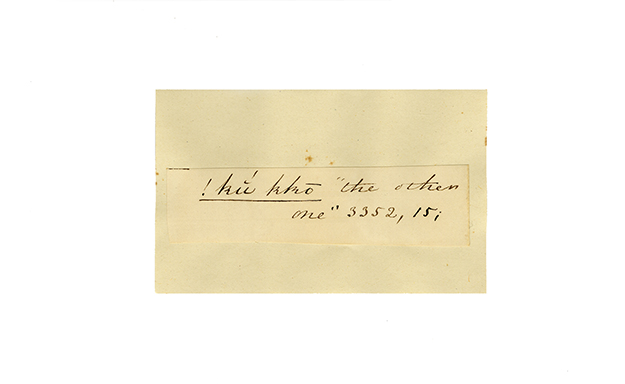 ! kŭ́ kkō "the other
one" 3352, 15;